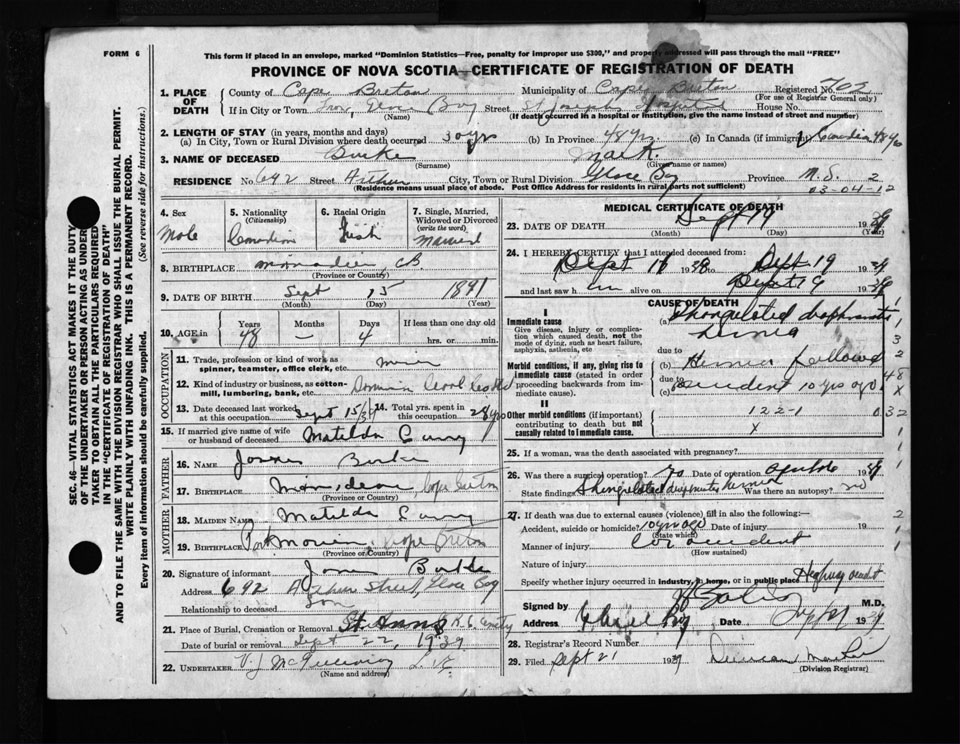 FORM 6
This form if placed in an envelope, marked "Dominion Statistics—Free, penalty for improper use $300," and properly addressed will pass through the mail "FREE"
PROVINCE OF NOVA SCOTIA—CERTIFICATE OF REGISTRATION OF DEATH
1. PLACE OF DEATH
County of Cape Breton Municipality of Cape Breton Registered No. 702
(For use of Registrar General only)
If in City or Town Glace Bay Street St Josephs Hospital House No.
(Name) (If death occurred in a hospital or institution, give the name instead of street and number)
2. LENGTH OF STAY (in years, months and days)
(a) In City, Town or Rural Division where death occurred 30 yrs (b) In Province 48 yrs (c) In Canada (if immigrant)
3. NAME OF DECEASED Burke Mark
(Surname) (Given name or names)
RESIDENCE No. 692 Street Arthur City, Town or Rural Division Glace Bay Province N.S. 2
(Residence means usual place of abode. Post Office Address for residents in rural parts not sufficient) 03-04-12
SEC. 46—VITAL STATISTICS ACT MAKES IT THE DUTY
OF THE UNDERTAKER OR PERSON ACTING AS UNDERTAKER TO OBTAIN ALL THE PARTICULARS REQUIRED
IN THE "CERTIFICATE OF REGISTRATION OF DEATH"
AND TO FILE THE SAME WITH THE DIVISION REGISTRAR WHO SHALL ISSUE THE BURIAL PERMIT.
WRITE PLAINLY WITH UNFADING INK. THIS IS A PERMANENT RECORD.
Every item of information should be carefully supplied. (See reverse side for instructions.)
4. Sex Male
5. Nationality (Citizenship) Canadian
6. Racial Origin Irish
7. Single, Married, Widowed or Divorced (write the word) Married
8. BIRTHPLACE C.B.
(Province or Country)
9. DATE OF BIRTH Sept 15 1891
(Month) (Day) (Year)
10. AGE in Years 48 Months — Days 4 If less than one day
hrs. or min.
OCCUPATION
11. Trade, profession or kind of work as spinner, teamster, office clerk, etc. Miner
12. Kind of industry or business, as cotton-mill, lumbering, bank, etc. Dominion Coal
13. Date deceased last worked at this occupation Sept 15/39 14. Total yrs. spent in this occupation 28 yrs
15. If married give name of wife or husband of deceased Matilda Curry
FATHER
16. NAME James Burke
17. BIRTHPLACE Cape Breton
(Province or Country)
MOTHER
18. MAIDEN NAME Matilda Curry
19. BIRTHPLACE Port Morien, Cape Breton
(Province or Country)
20. Signature of informant James Burke
Address 692 Arthur Street, Glace Bay
Relationship to deceased Son
21. Place of Burial, Cremation or Removal St. Anns R.C. Cemetery
Date of burial or removal Sept 22, 1939
22. UNDERTAKER V. J. McGillivray
(Name and address)
MEDICAL CERTIFICATE OF DEATH
23. DATE OF DEATH Sept 19 1939
(Month) (Day) (Year)
24. I HEREBY CERTIFY that I attended deceased from:
Sept 16 1939 to Sept 19 1939
and last saw h im alive on Sept 19 1939
CAUSE OF DEATH
I
Immediate cause
Give disease, injury or complication which caused death, not the mode of dying, such as heart failure, asphyxia, asthenia, etc
(a) Strangulated diaphramatic
hernia
due to
Morbid conditions, if any, giving rise to immediate cause (stated in order proceeding backwards from immediate cause).
(b) Hernia followed
due to
(c) accident 10 yrs ago
II
Other morbid conditions (if important) contributing to death but not causally related to immediate cause.
122-1
X
25. If a woman, was the death associated with pregnancy?
26. Was there a surgical operation? Date of operation 1939
State findings Strangulated hernia Was there an autopsy? no
27. If death was due to external causes (violence) fill in also the following:—
Accident, suicide or homicide? 10 yrs ago Date of injury 19
(State which)
Manner of injury Car accident
(How sustained)
Nature of injury
Specify whether injury occurred in industry, in home, or in public place Highway
Signed by M.D.
Address Glace Bay Date 1939
28. Registrar's Record Number
29. Filed Sept 21 1939
(Division Registrar)